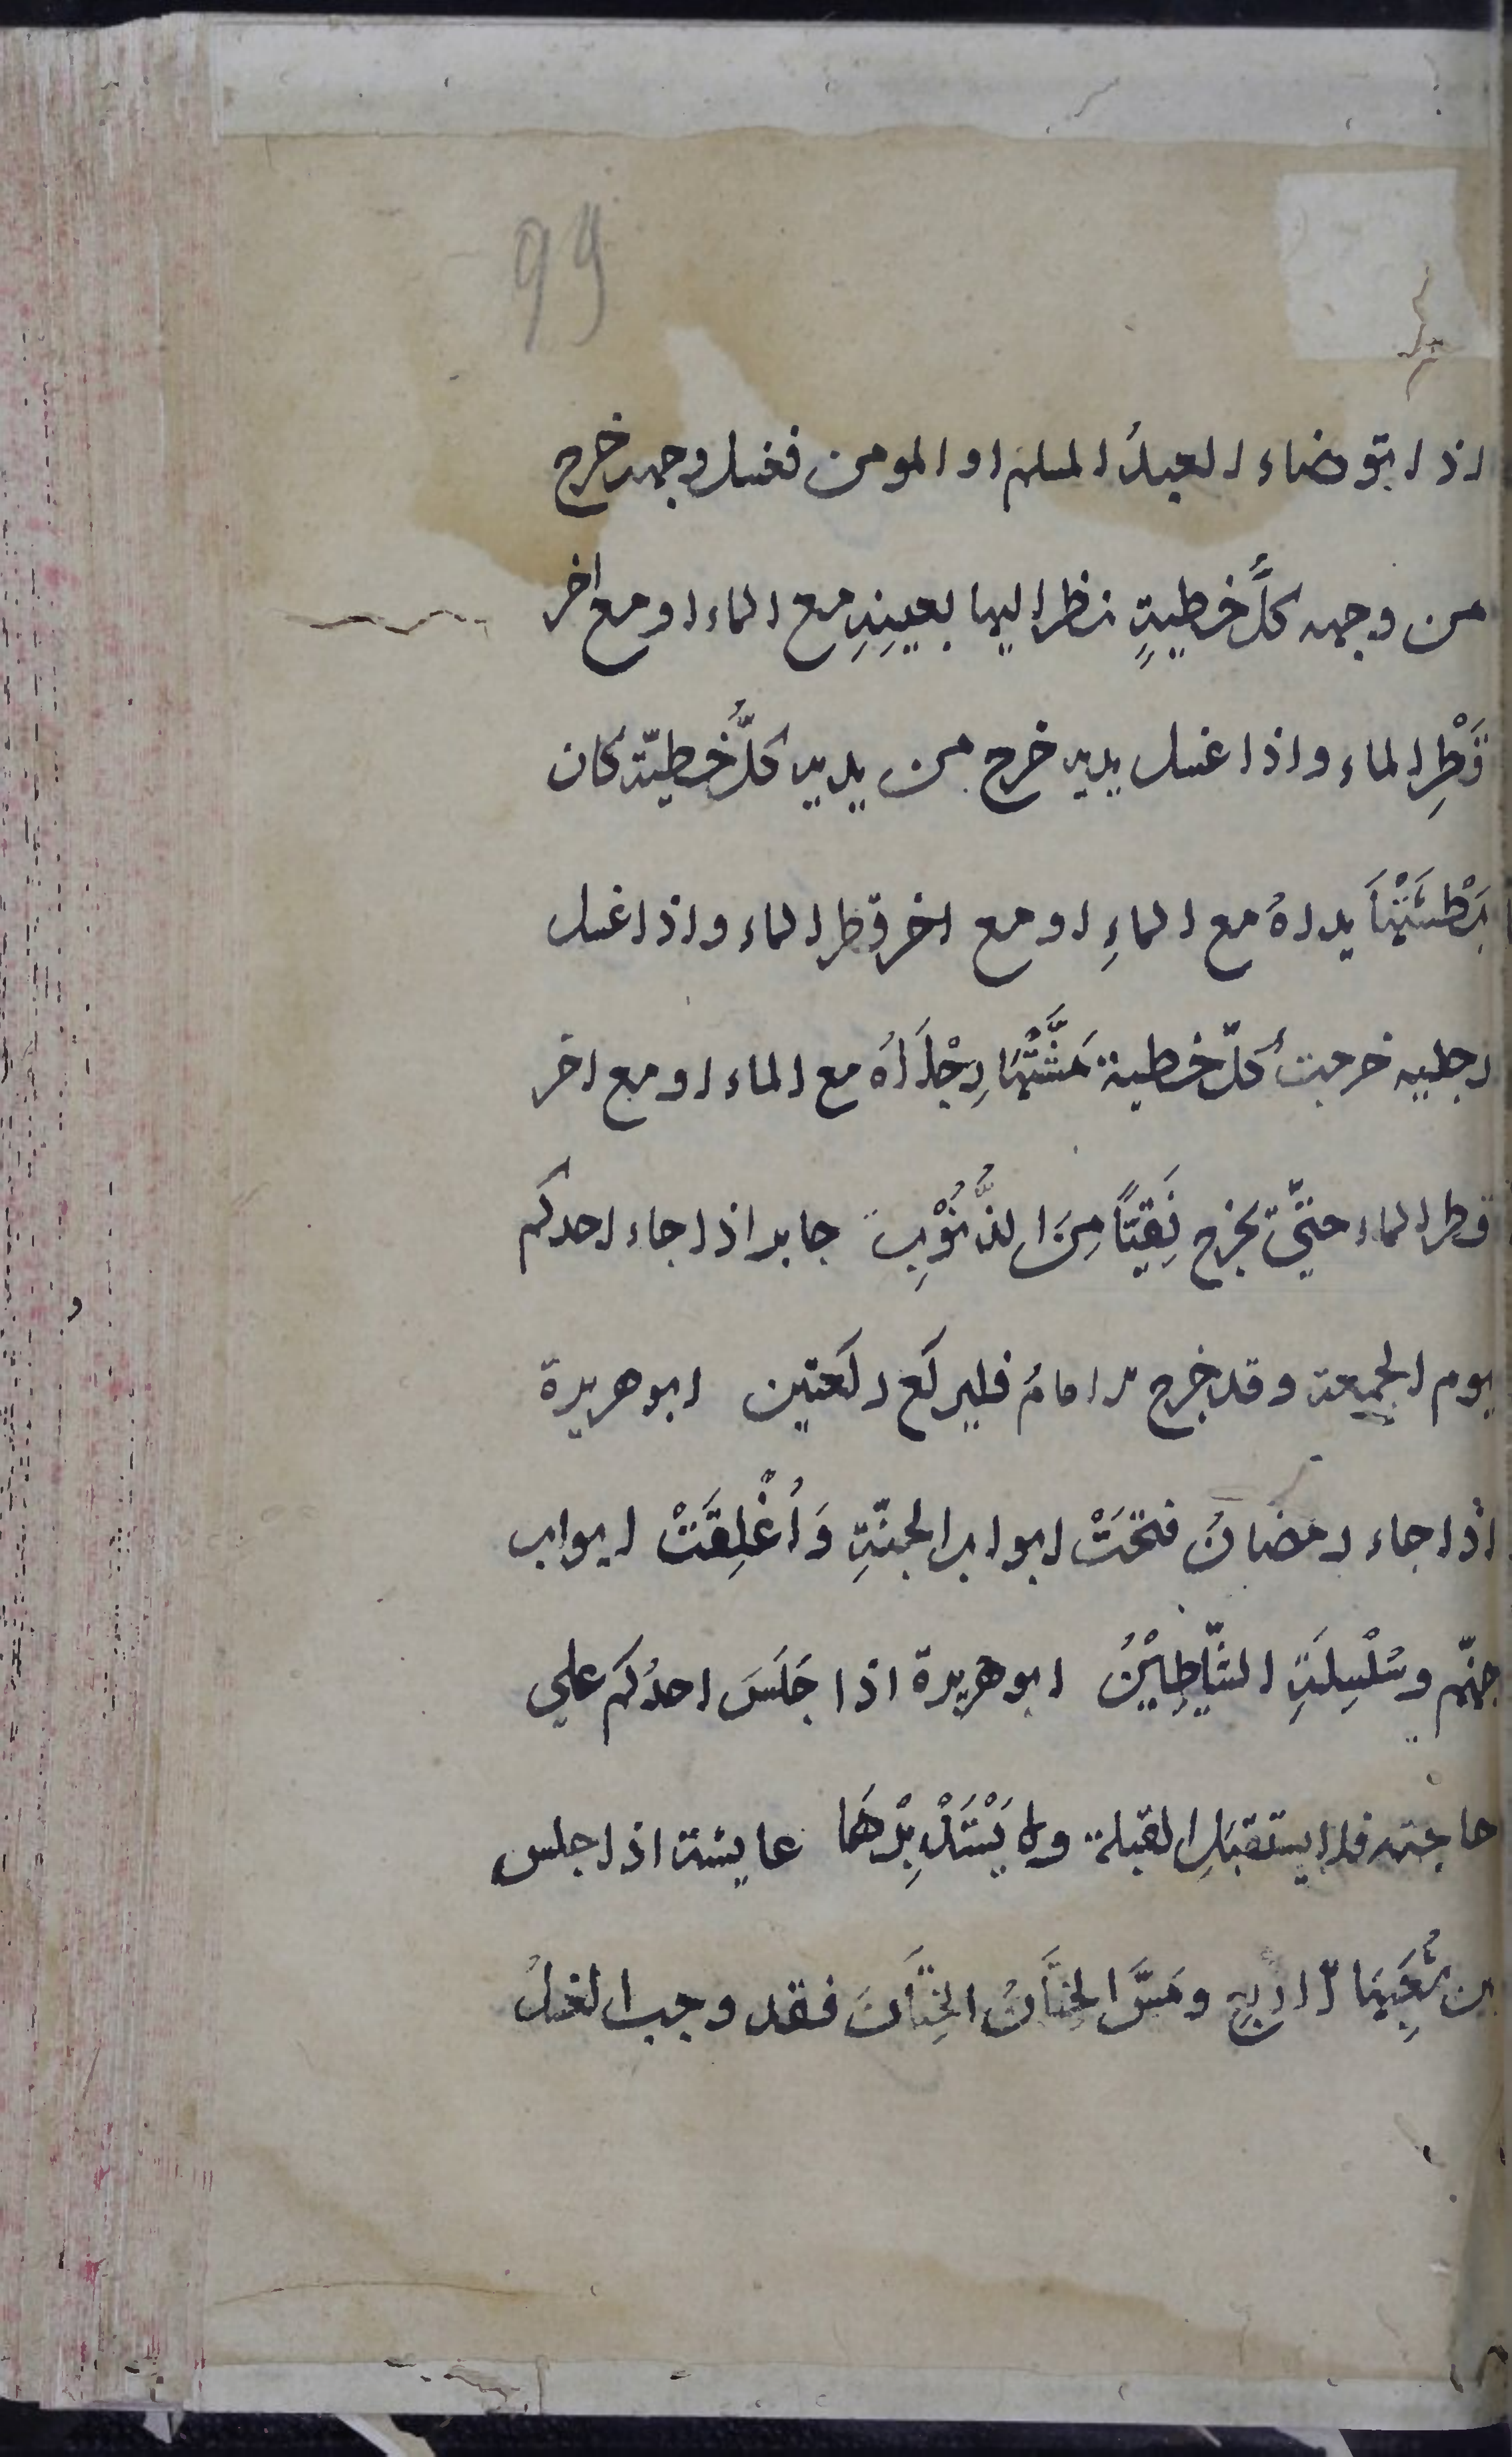 99
اذا توضاء العبدُ المسلم او المومن فغسل وجهه خرج
من وجهه كلُّ خطيةٍ نظر اليها بعينِهِ مع الماء او مع اخر
قَطْرِ الماء واذا غسل يديه خرج من يديه كلُّ خطيّة كان
بَطْشَتْهَا يداهُ مع الماءِ او مع اخر قطر الماء واذا غسل
رجليه خرجت كلّ خطية مَشَّتْهَا رِجْلَاهُ مع الماء او مع اخر
قطر الماء حتىّ يخرج نَقِيّاً مِنَ الذُّنُوْبِ جابر اذا جاء احدكم
يوم الجمعة وقد خرج الامامُ فليركع ركعتين ابو هريرة
اذا جاء رمضانُ فتحَتْ ابواب الجنّةِ وَأُغْلِقَتْ ابواب
جهنّم وسُلْسِلَةِ الشّيٰطِيْنُ ابو هريرة اذا جَلَسَ احدُكم علي
حاجته فلا يستقبلِ القبلة ولا يَسْتَدْبِرْهَا عايشة اذا جلس
بين شُعَبِهَا الاربعِ ومَسَّ الخِتَانُ الخِتَانَ فقد وجب الغسلُ